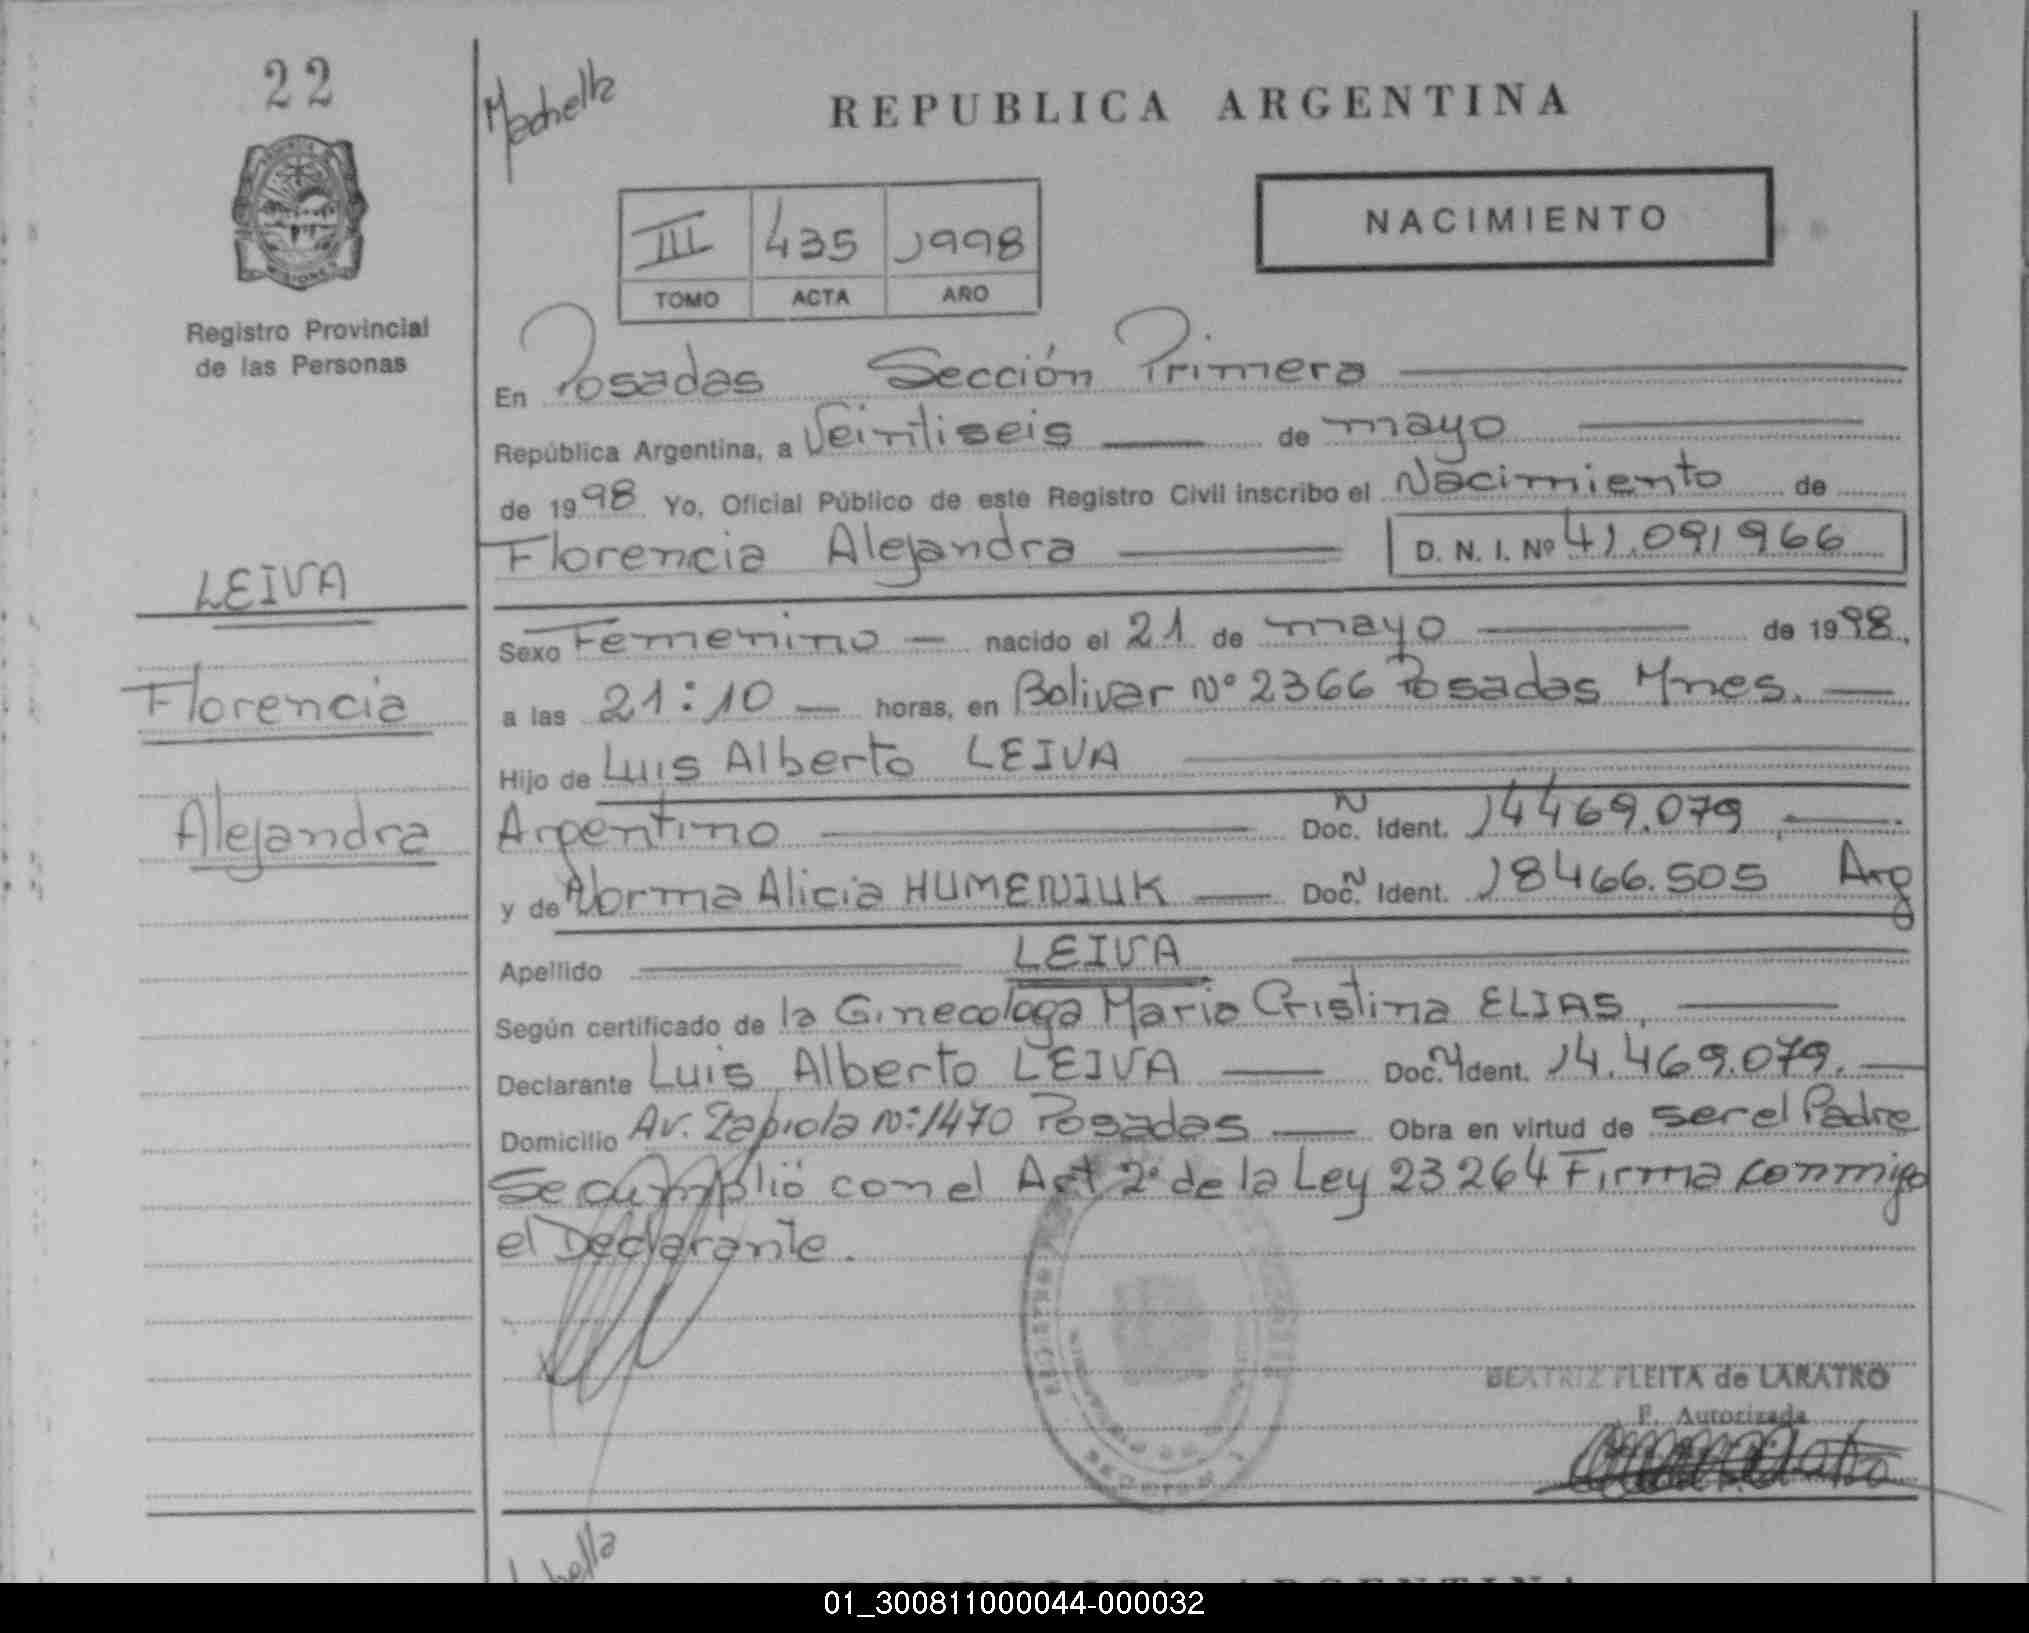 22
REPUBLICA ARGENTINA
NACIMIENTO
III 435 1998
TOMO ACTA AÑO
Registro Provincial
de las Personas
En Posadas Sección Primera
República Argentina, a Veintiseis de mayo
de 1998 Yo, Oficial Público de este Registro Civil inscribo el Nacimiento de
Florencia Alejandra D. N. I. Nº 41.091966
LEIVA
Florencia
Alejandra
Sexo Femenino nacido el 21 de mayo de 1998,
a las 21:10 horas, en Bolivar Nº 2366 Posadas Mnes.
Hijo de Luis Alberto LEIVA
Argentino Doc. N Ident. 14469.079
y de Norma Alicia HUMENIUK Doc. N Ident. 18466.505 Arg
Apellido LEIVA
Según certificado de la Ginecologa Maria Cristina ELIAS,
Declarante Luis Alberto LEIVA Doc. N Ident. 14.469.079.
Domicilio Av. Zapiola Nº:1470 Posadas Obra en virtud de ser el Padre
Se cumplió con el Art 2º de la Ley 23264 Firma conmigo
el Declarante.
BEATRIZ FLEITA de LARATRO
F. Autorizada
01_300811000044-000032